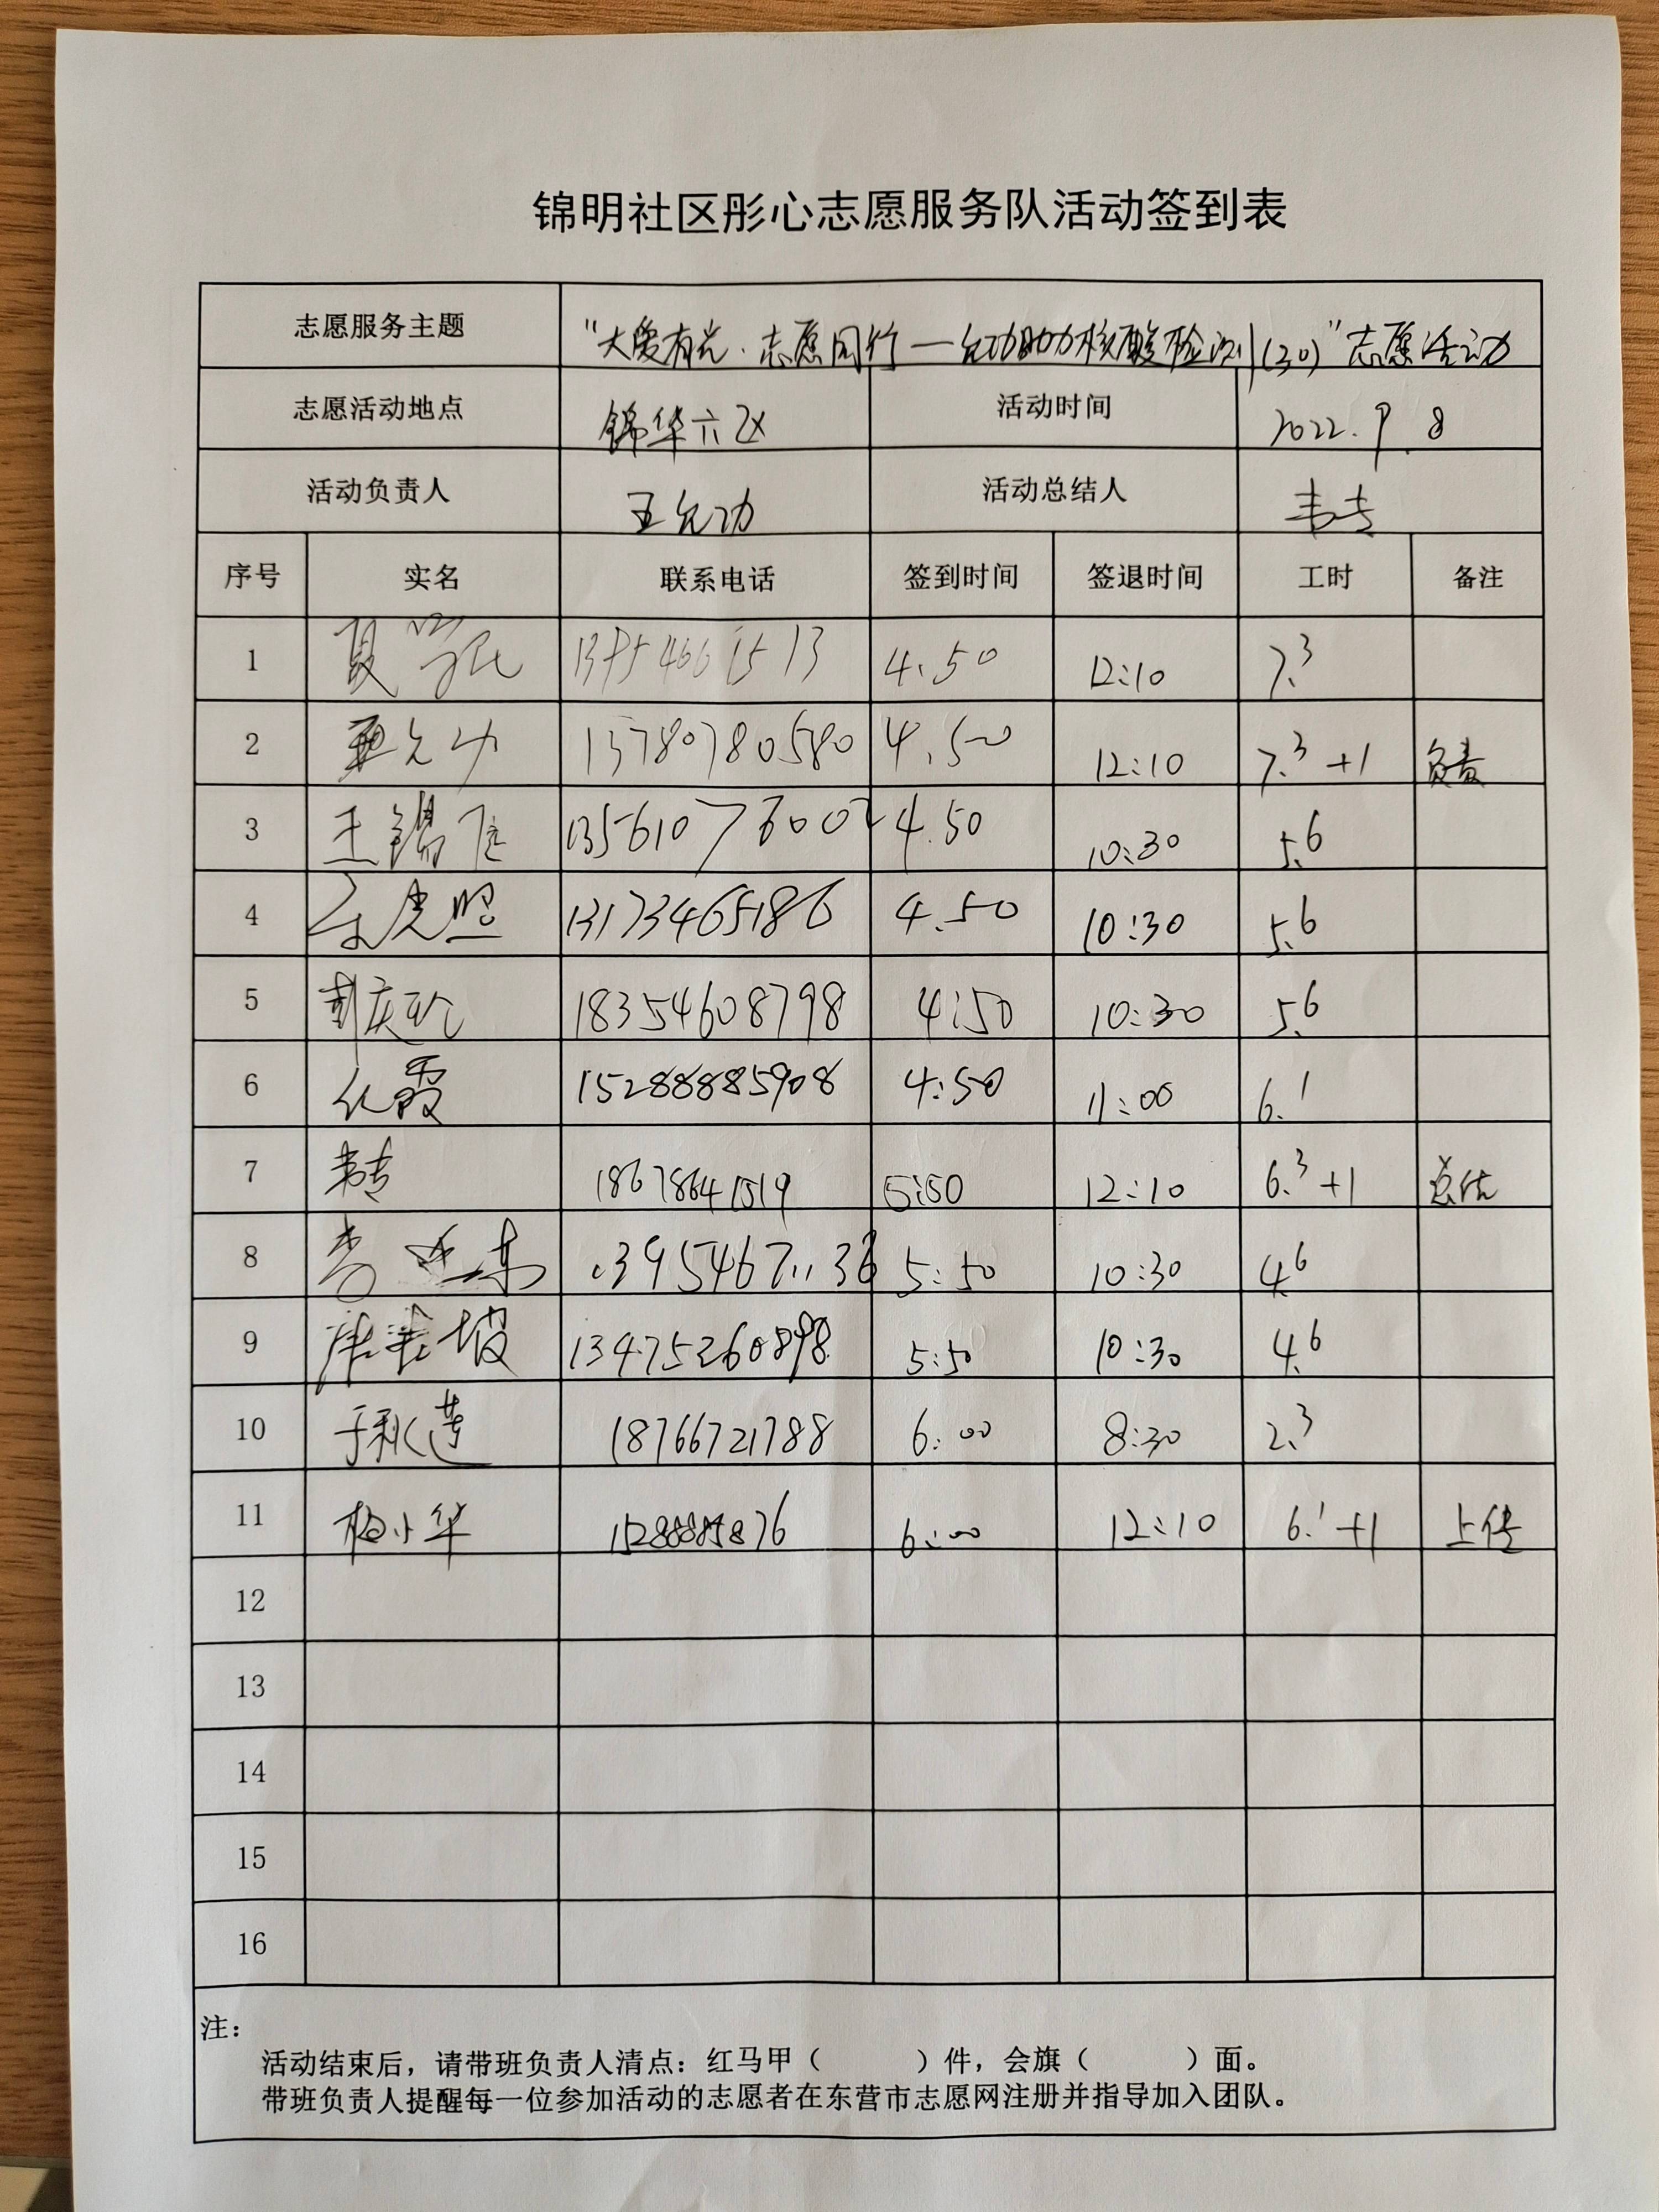 锦明社区彤心志愿服务队活动签到表
志愿服务主题 "大爱有光·志愿同行—允功助力核酸检测(30)"志愿活动
志愿活动地点 锦华六区 活动时间 2022.9 8
活动负责人 王允功 活动总结人 韦专
序号 实名 联系电话 签到时间 签退时间 工时 备注
1 4.50 12:10 7.3
2 13780780580 4.50 12:10 7.3+1 负责
3 王锡 4.50 10:30 5.6
4 13173465186 4.50 10:30 5.6
5 18354608798 4:50 10:30 5.6
6 霞 15288885908 4:50 11:00 6.1
7 韦专 18678641519 5:50 12:10 6.3+1 总结
8 5:50 10:30 4.6
9 13475260898 5:50 10:30 4.6
10 于秋莲 18766721788 6:00 8:30 2.3
11 杨小华 6:00 12:10 6.1+1 上传
12
13
14
15
16
注：
活动结束后，请带班负责人清点：红马甲（ ）件，会旗（ ）面。
带班负责人提醒每一位参加活动的志愿者在东营市志愿网注册并指导加入团队。